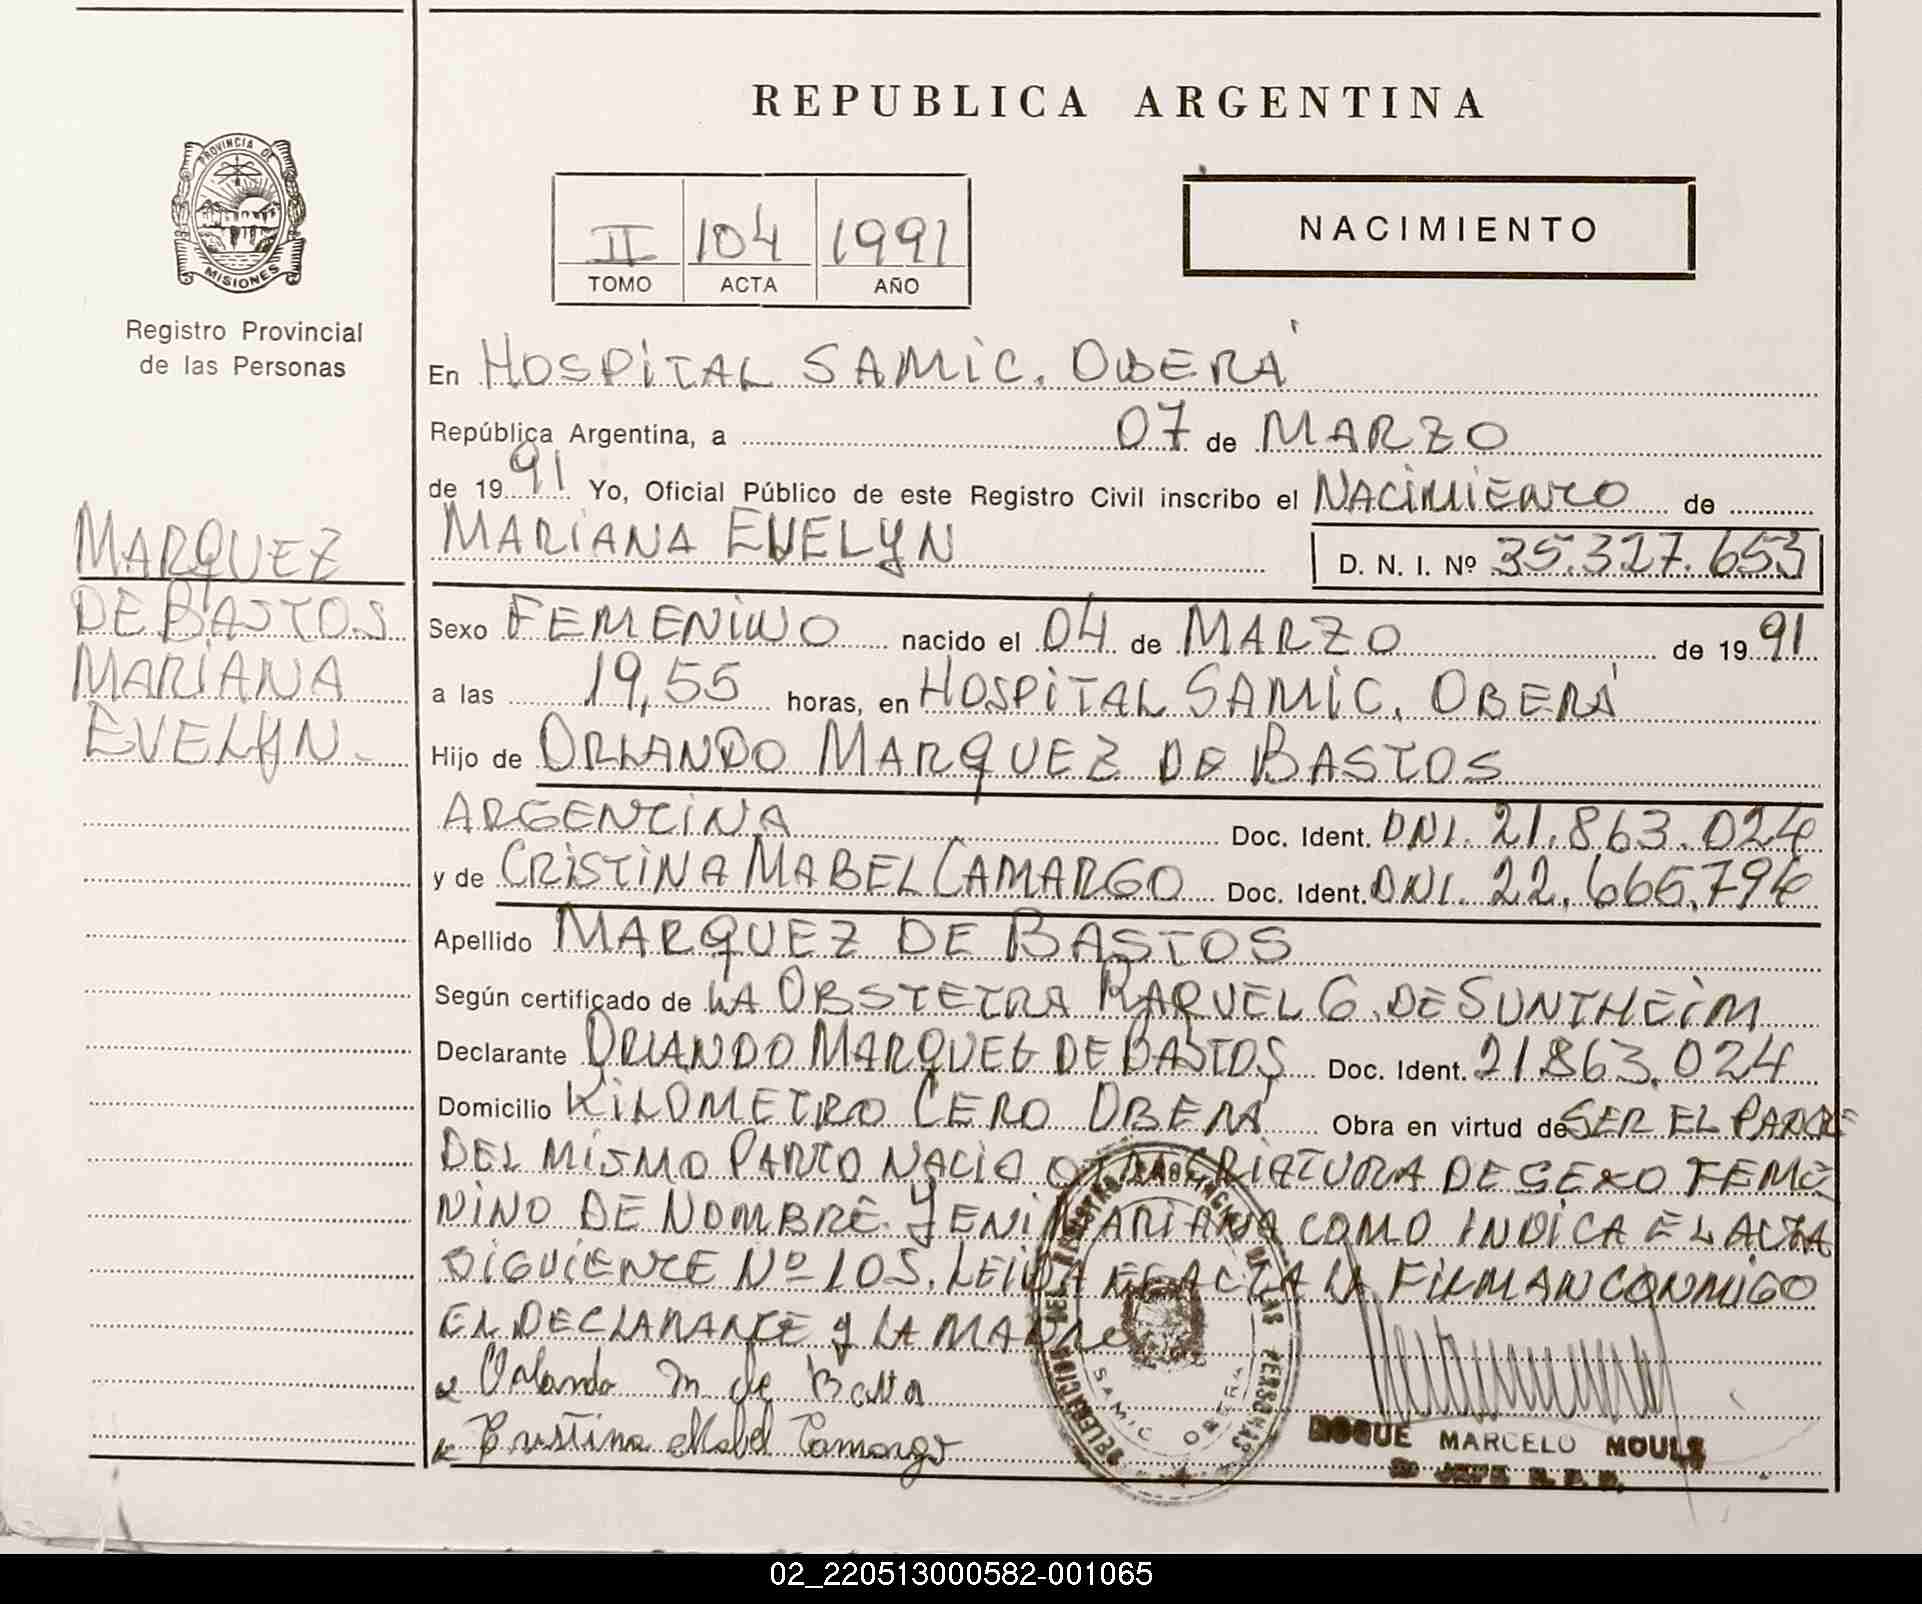 REPUBLICA ARGENTINA
PROVINCIA DE
MISIONES
Registro Provincial
de las Personas
II 104 1991
TOMO ACTA AÑO
NACIMIENTO
En HOSPITAL SAMIC. OBERÁ
República Argentina, a 07 de MARZO
de 1991 Yo, Oficial Público de este Registro Civil inscribo el NACIMIENTO de
MARIANA EVELYN D. N. I. Nº 35.327.653
MARQUEZ
DE BASTOS
MARIANA
EVELYN.
Sexo FEMENINO nacido el 04 de MARZO de 1991
a las 19,55 horas, en HOSPITAL SAMIC. OBERÁ
Hijo de ORLANDO MARQUEZ DE BASTOS
ARGENTINA Doc. Ident. DNI. 21.863.024
y de CRISTINA MABEL CAMARGO Doc. Ident. DNI. 22.665.794
Apellido MARQUEZ DE BASTOS
Según certificado de LA OBSTETRA RAQUEL G. DE SUNTHEIM
Declarante ORLANDO MARQUEZ DE BASTOS Doc. Ident. 21.863.024
Domicilio KILOMETRO CERO OBERÁ Obra en virtud de SER EL PADRE
DEL MISMO PARTO NACIO OTRA CRIATURA DE SEXO FEME
NINO DE NOMBRE YENI MARIANA COMO INDICA EL ACTA
SIGUIENTE Nº 105. LEIDA EL ACTA LA FIRMAN CONMIGO
EL DECLARANTE Y LA MADRE
Orlando M de Basto
Cristina Mabel Camargo
DELEGACION DEL REGISTRO PROVINCIAL DE LAS PERSONAS
SAMIC OBERA
ROQUE MARCELO MOULS
JEFE R. P. P.
02_220513000582-001065